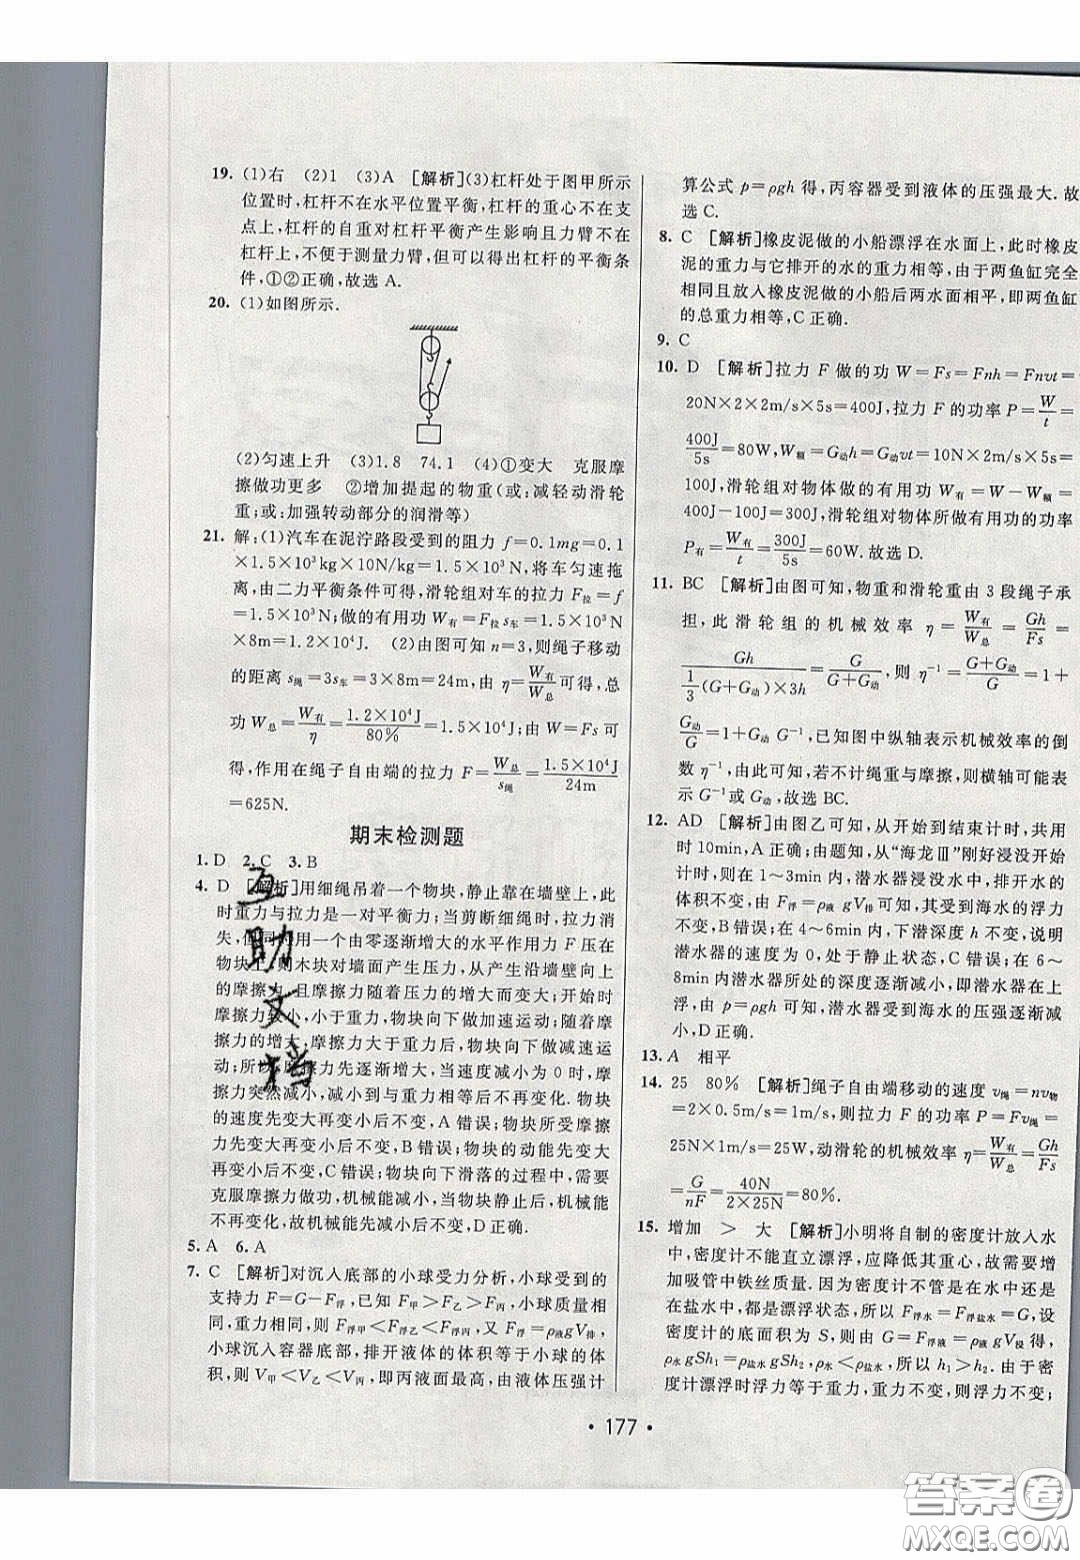 19. (1)右 (2)1 (3)A [解析](3)杠杆处于图甲所示
位置时,杠杆不在水平位置平衡,杠杆的重心不在支
点上,杠杆的自重对杠杆平衡产生影响且力臂不在
杠杆上,不便于测量力臂,但可以得出杠杆的平衡条
件,①②正确,故选 A.
20. (1)如图所示.
(2)匀速上升 (3)1.8 74.1 (4)①变大 克服摩
擦做功更多 ②增加提起的物重(或:减轻动滑轮
重;或:加强转动部分的润滑等)
21. 解:(1)汽车在泥泞路段受到的阻力 f=0.1mg=0.1
×1.5×10³kg×10N/kg=1.5×10³N,将车匀速拖
离,由二力平衡条件可得,滑轮组对车的拉力 F拉=f
=1.5×10³N;做的有用功 W有=F拉s车=1.5×10³N
×8m=1.2×10⁴J. (2)由图可知 n=3,则绳子移动
的距离 s绳=3s车=3×8m=24m,由 η=W有/W总可得,总
功 W总=W有/η=1.2×10⁴J/80%=1.5×10⁴J;由 W=Fs 可
得,作用在绳子自由端的拉力 F=W总/s绳=1.5×10⁴J/24m
=625N.
期末检测题
1. D 2. C 3. B
4. D [解析]用细绳吊着一个物块,静止靠在墙壁上,此
时重力与拉力是一对平衡力;当剪断细绳时,拉力消
失,但同时用一个由零逐渐增大的水平作用力 F 压在
物块上,则木块对墙面产生压力,从产生沿墙壁向上
的摩擦力,且摩擦力随着压力的增大而变大;开始时
摩擦力较小,小于重力,物块向下做加速运动;随着摩
擦力的增大;摩擦力大于重力时,物块向下做减速运
动;所以,摩擦力先逐渐增大,当速度减小为 0 时,
摩擦力突然减小,大小与重力相等后不再变化.物块
的速度先变大再变小后不变,A 错误;物块所受摩擦
力先变大再变小后不变,B 错误;物块的动能先变大
再变小后不变,C 错误;物块向下滑落的过程中,需要
克服摩擦力做功,机械能减小,物块静止后,机械能
不再变化,故机械能先减小后不变,D 正确.
5. A 6. A
7. C [解析]对沉入底部的小球受力分析,小球受到的
支持力 F=G-F浮,已知 F甲>F乙>F丙,小球质量相
同,重力相同,则 F浮甲<F浮乙<F浮丙,又 F浮=ρ液gV排,
小球沉入容器底部,排开液体的体积等于小球的体
积,则 V甲<V乙<V丙,即丙液面最高,由液体压强计
算公式 p=ρgh 得,丙容器受到液体的压强最大.故
选 C.
8. C [解析]橡皮泥做的小船漂浮在水面上,此时橡皮
泥的重力与它排开的水的重力相等,由于两鱼缸完全
相同且放入橡皮泥做的小船后两水面相平,即两鱼缸
的总重力相等,C 正确.
9. C
10. D [解析]拉力 F 做的功 W=Fs=Fnh=Fnvt=
20N×2×2m/s×5s=400J,拉力 F 的功率 P=W/t=
400J/5s=80W,W额=G动h=G动vt=10N×2m/s×5s=
100J,滑轮组对物体做的有用功 W有=W-W额=
400J-100J=300J,滑轮组对物体所做有用功的功率
P有=W有/t=300J/5s=60W.故选 D.
11. BC [解析]由图可知,物重和滑轮重由 3 段绳子承
担,此滑轮组的机械效率 η=W有/W总=Gh/Fs=
Gh/(1/3(G+G动)×3h)=G/(G+G动),则 η⁻¹=(G+G动)/G=1+
G动/G=1+G动 G⁻¹,已知图中纵轴表示机械效率的倒
数 η⁻¹,由此可知,若不计绳重与摩擦,则横轴可能表
示 G⁻¹或 G动,故选 BC.
12. AD [解析]由图乙可知,从开始到结束计时,共用
时 10min,A 正确;由题知,从“海龙Ⅲ”刚好浸没开始
计时,则在 1~3min,潜水器浸没水中,排开水的
体积不变,由 F浮=ρ液 gV排可知,受到海水的浮力
不变,B 错误;在 4~6min 内,下潜深度 h 不变,说明
潜水器的速度为 0,处于静止状态,C 错误;在 6~
8min 内潜水器所处的深度逐渐减小,即潜水器在上
浮,由 p=ρgh 可知,潜水器受到海水的压强逐渐减
小,D 正确.
13. A 相平
14. 25 80% [解析]绳子自由端移动的速度 v绳=nv物
=2×0.5m/s=1m/s,则拉力 F 的功率 P=Fv绳=
25N×1m/s=25W,动滑轮的机械效率 η=W有/W总=Gh/Fs
=G/nF=40N/2×25N=80%.
15. 增加 > 大 [解析]小明将自制的密度计放入水
中,密度计不能直立漂浮,应降低其重心,故需要增
加吸管中铁丝质量. 因为密度计不管是在水中还是
在盐水中,都是漂浮状态,所以 F浮水=F浮盐水=G,设
密度计的底面积为 S,则由 G=F浮液=ρ液 gV浸 得,
ρ水 gSh₁=ρ盐水 gSh₂,ρ水<ρ盐水,所以 h₁>h₂. 由于密
度计漂浮时浮力等于重力,重力不变,则浮力不变;
• 177 •
互助文档
答案圈
MXQE.COM